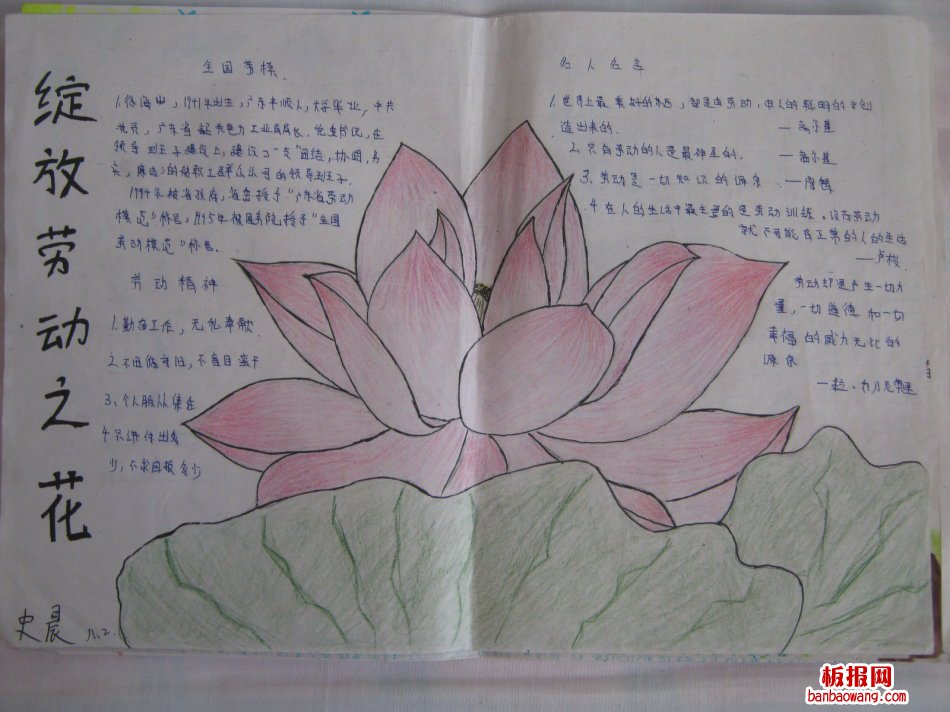 绽放劳动之花
全国劳模
1.徐海中,1941年出生,广东丰顺人,大学毕业,中共
党员,广东省韶关电力工业局局长、党委书记,在
领导班子建设上,建设了一支"团结,协调,务
实,廉洁"的
1994年被省政府,省委授予"广东省劳动
模范"称号;1995年被国务院授予"全国
劳动模范"称号.
劳动精神
1.勤奋工作,无私奉献
2.不因循守旧,不盲目蛮干
3、个人服从集体
4.只讲付出多
少,不求回报多少
名人名言
1.世界上最美好的东西,都是由劳动,由人的聪明的手创
造出来的.
—高尔基
2.只有劳动的人是最神圣的.—高尔基
3、劳动是一切知识的源泉.—陶铸
4.在人的生活中最主要的是劳动训练。没有劳动
就不可能有正常的人的生活
—卢梭.
劳动却是产生一切力
量,一切道德和一切
幸福的威力无比的
源泉
—拉·
史晨 八.2.
板报网
banbaowang.com